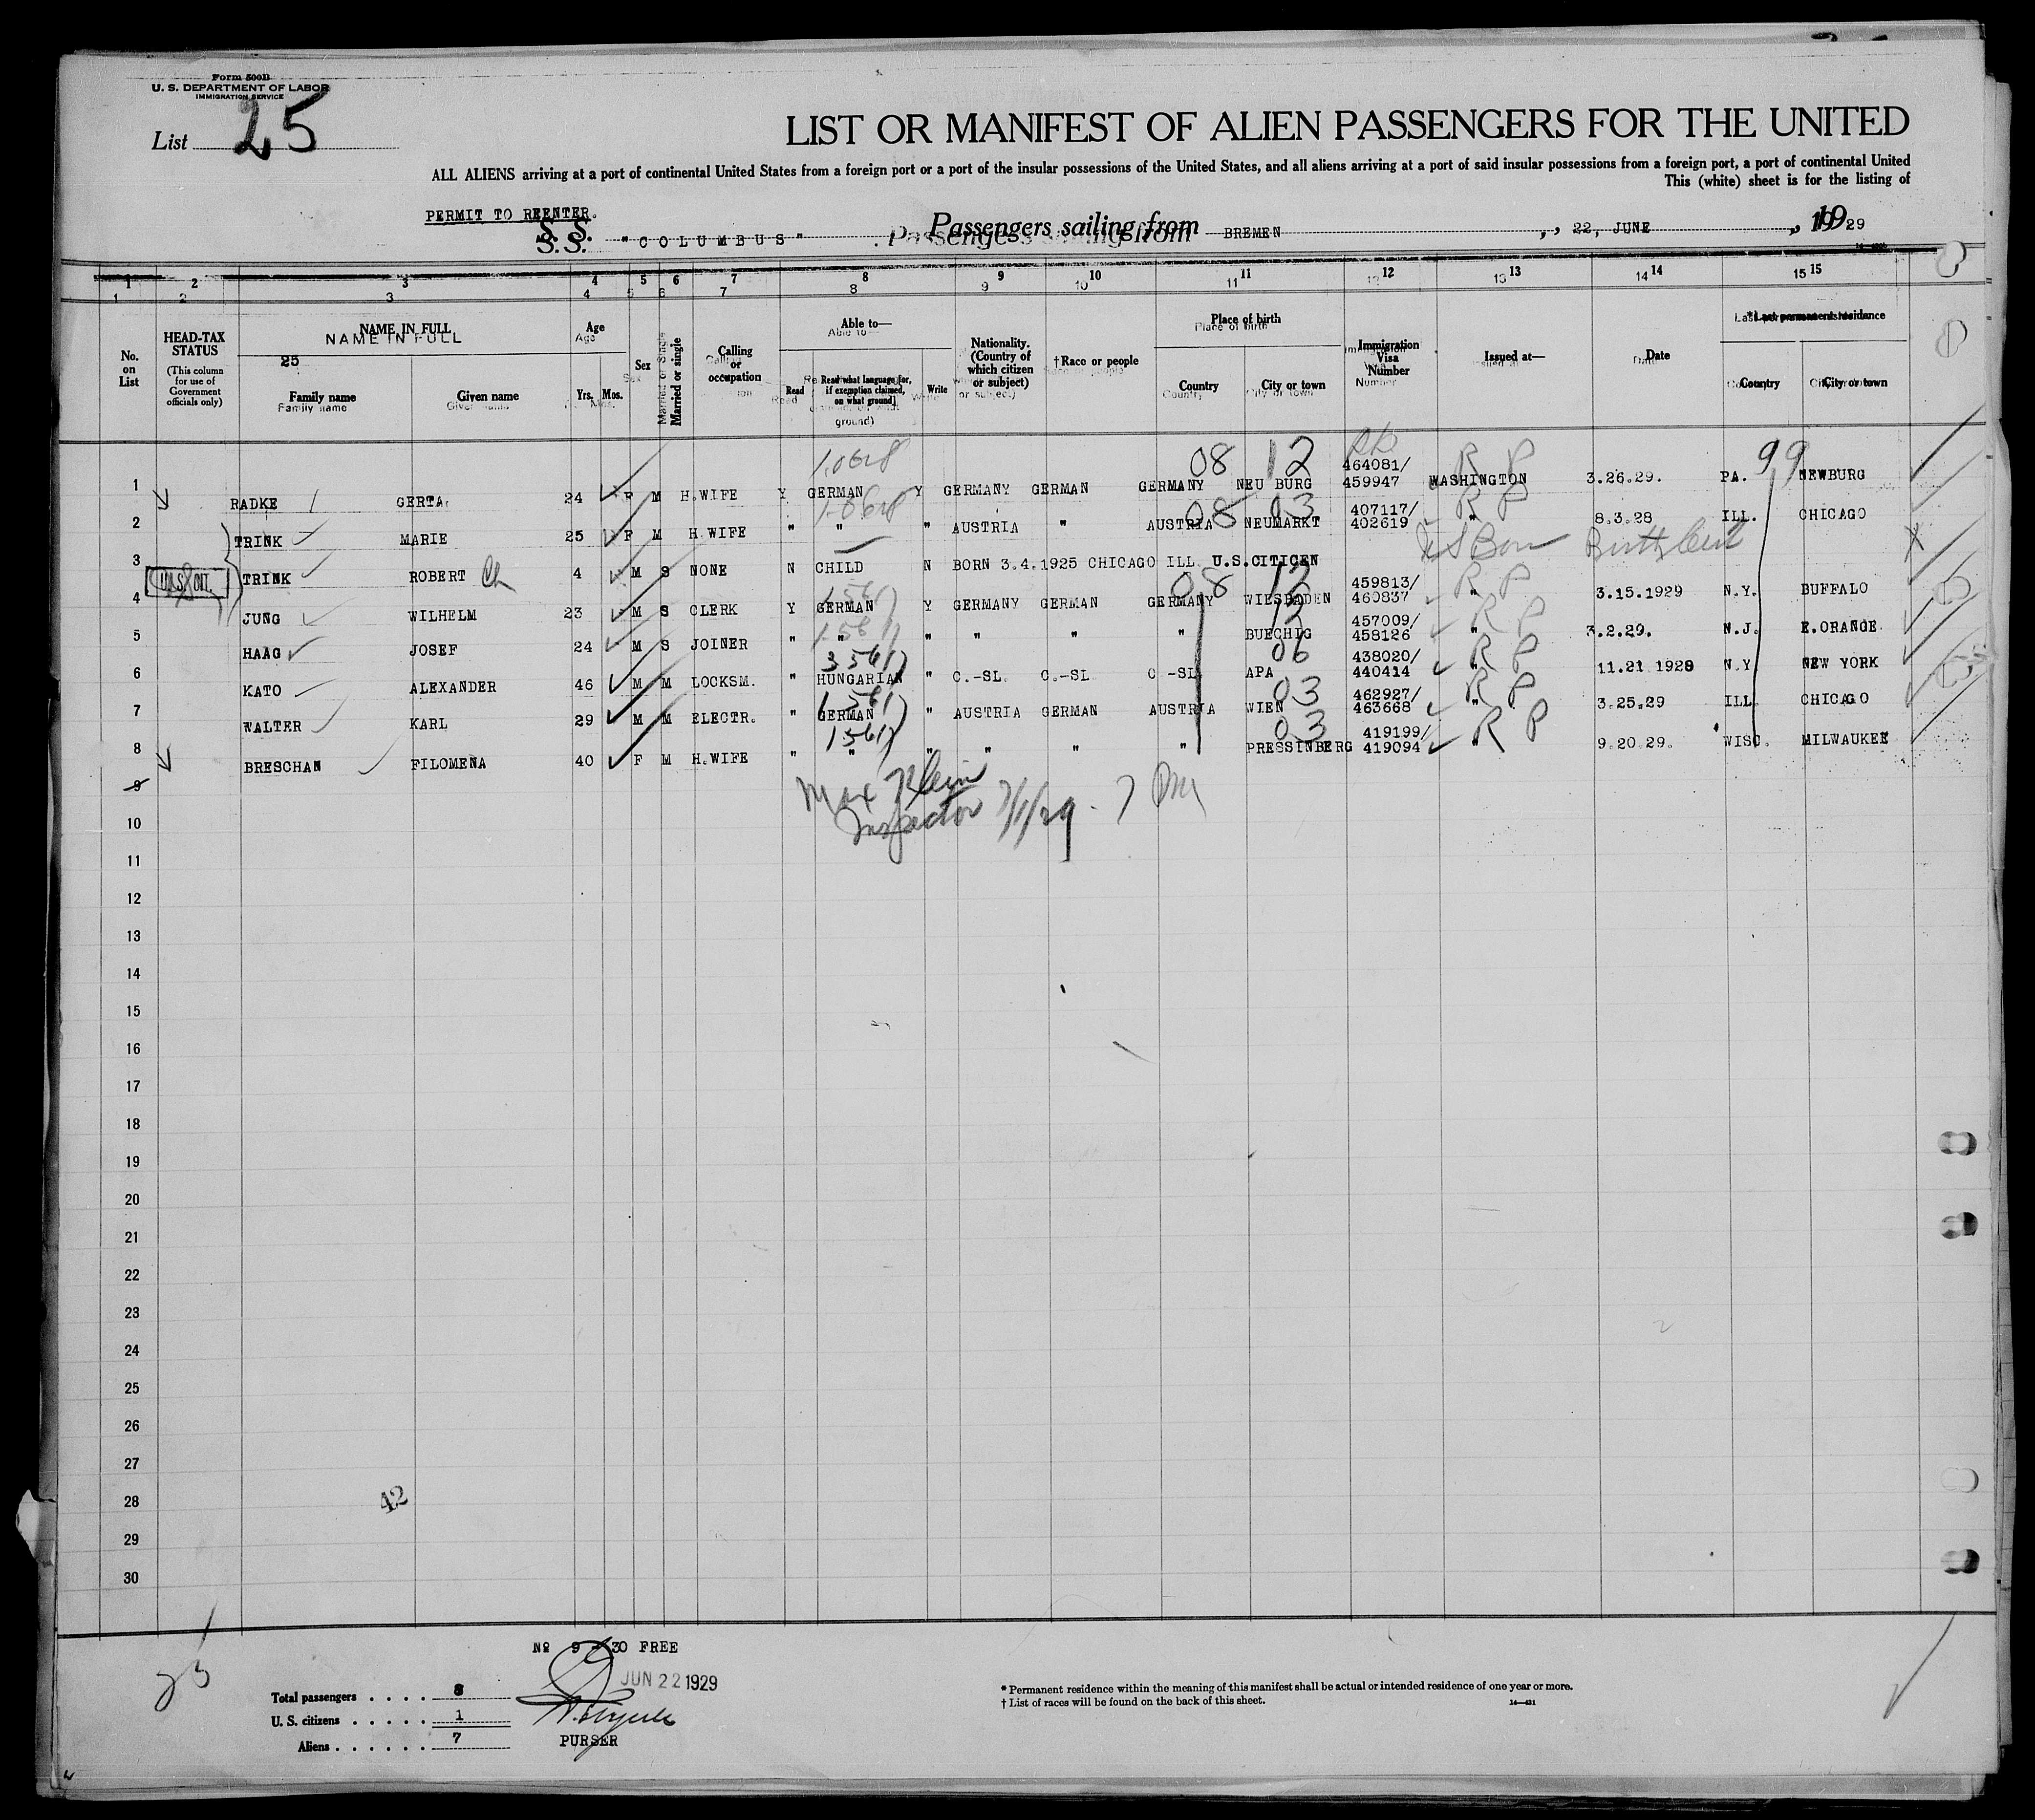 Form 500B
U. S. DEPARTMENT OF LABOR
IMMIGRATION SERVICE
List 25
LIST OR MANIFEST OF ALIEN PASSENGERS FOR THE UNITED
ALL ALIENS arriving at a port of continental United States from a foreign port or a port of the insular possessions of the United States, and all aliens arriving at a port of said insular possessions from a foreign port, a port of continental United
This (white) sheet is for the listing of
PERMIT TO REENTER.
S. S. "COLUMBUS" Passengers sailing from BREMEN, 22, JUNE, 1929
1 2 3 4 5 6 7 8 9 10 11 12 13 14 15
No. on List
HEAD-TAX STATUS (This column for use of Government officials only)
NAME IN FULL
25
Family name Given name
Age Yrs. Mos.
Sex
Married or single
Calling or occupation
Able to—
Read Read what language [or, if exemption claimed, on what ground] Write
Nationality. (Country of which citizen or subject)
†Race or people
Place of birth
Country City or town
Immigration Visa Number
Issued at—
Date
*Last permanent residence
Country City or town
1 RADKE GERTA 24 F M H.WIFE Y GERMAN Y GERMANY GERMAN GERMANY NEU BURG 464081/ 459947 WASHINGTON 3.26.29. PA. NEWBURG
2 TRINK MARIE 25 F M H.WIFE " " " AUSTRIA " AUSTRIA NEUMARKT 407117/ 402619 " 8.3.28 ILL. CHICAGO
US Born Birth Cert
3 U.S. CIT. TRINK ROBERT Ch 4 M S NONE N CHILD N BORN 3.4.1925 CHICAGO ILL U.S.CITICEN
4 JUNG WILHELM 23 M S CLERK Y GERMAN Y GERMANY GERMAN GERMANY WIESBADEN 459813/ 460837 " 3.15.1929 N.Y. BUFFALO
5 HAAG JOSEF 24 M S JOINER " " " " " " BUECHIG 457009/ 458126 " 3.2.29. N.J. E.ORANGE
6 KATO ALEXANDER 46 M M LOCKSM. " HUNGARIAN " C.-SL. C.-SL C -SL APA 438020/ 440414 " 11.21 1928 N.Y NEW YORK
7 WALTER KARL 29 M M ELECTR. " GERMAN " AUSTRIA GERMAN AUSTRIA WIEN 462927/ 463668 " 3.25.29 ILL CHICAGO
8 BRESCHAN FILOMENA 40 F M H.WIFE " " " " " " PRESSINBERG 419199/ 419094 " 9.20 29. WISC. MILWAUKEE
9
Max Klein
Inspector 7/1/29
10
11
12
13
14
15
16
17
18
19
20
21
22
23
24
25
26
27
28 42
29
30
No 9 - 30 FREE
JUN 22 1929
Total passengers . . . . 8
U. S. citizens . . . . . 1
Aliens . . . . . . 7
PURSER
* Permanent residence within the meaning of this manifest shall be actual or intended residence of one year or more.
† List of races will be found on the back of this sheet.
14—431